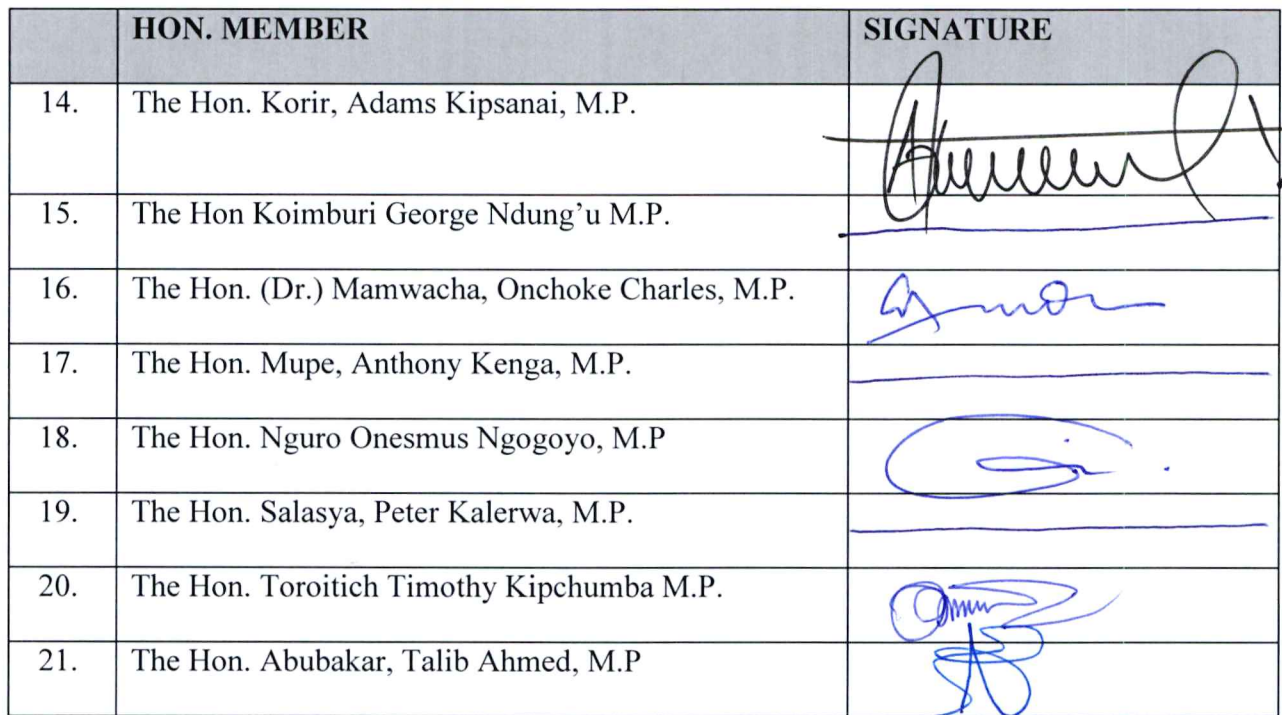 HON. MEMBER SIGNATURE
14. The Hon. Korir, Adams Kipsanai, M.P.
15. The Hon Koimburi George Ndung’u M.P.
16. The Hon. (Dr.) Mamwacha, Onchoke Charles, M.P.
17. The Hon. Mupe, Anthony Kenga, M.P.
18. The Hon. Nguro Onesmus Ngogoyo, M.P
19. The Hon. Salasya, Peter Kalerwa, M.P.
20. The Hon. Toroitich Timothy Kipchumba M.P.
21. The Hon. Abubakar, Talib Ahmed, M.P